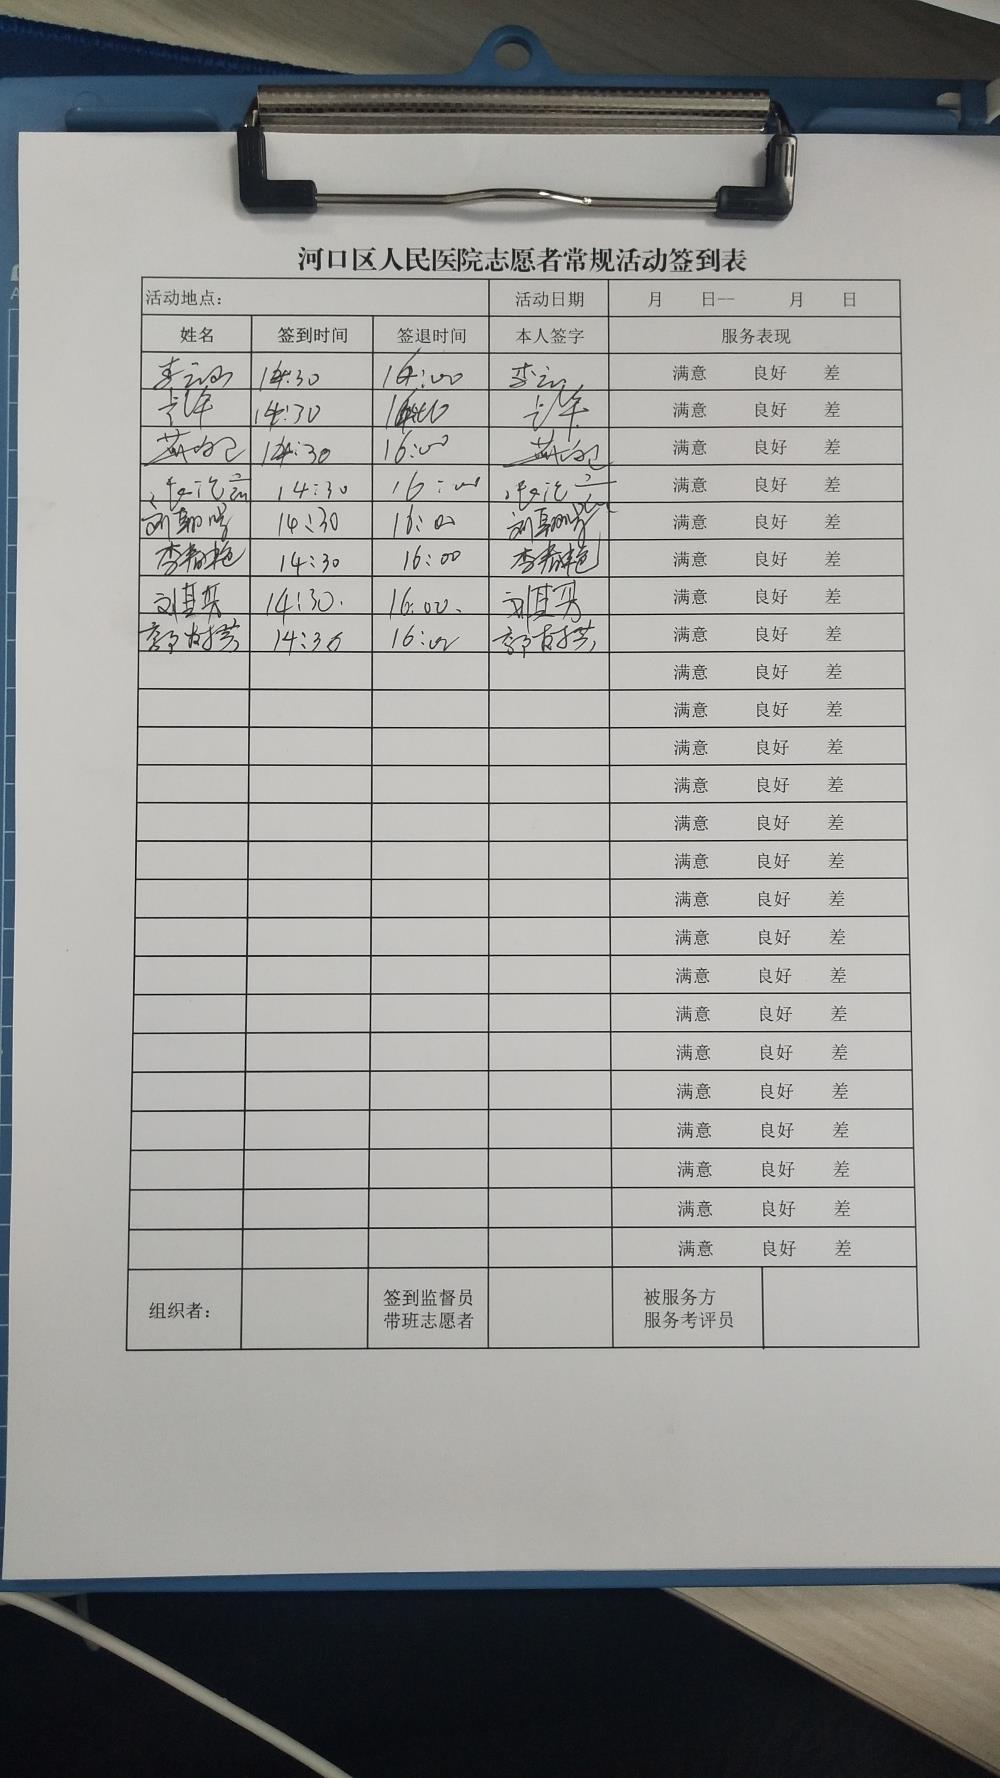 河口区人民医院志愿者常规活动签到表
活动地点: 活动日期 月 日-- 月 日
姓名 签到时间 签退时间 本人签字 服务表现
14:30 16:00 满意 良好 差
14:30 满意 良好 差
14:30 16:00 满意 良好 差
14:30 16:00 满意 良好 差
14:30 16:00 满意 良好 差
李春艳 14:30 16:00 李春艳 满意 良好 差
14:30. 16:00. 满意 良好 差
14:30 16:00 满意 良好 差
满意 良好 差
满意 良好 差
满意 良好 差
满意 良好 差
满意 良好 差
满意 良好 差
满意 良好 差
满意 良好 差
满意 良好 差
满意 良好 差
满意 良好 差
满意 良好 差
满意 良好 差
满意 良好 差
满意 良好 差
满意 良好 差
组织者: 签到监督员 被服务方
带班志愿者 服务考评员